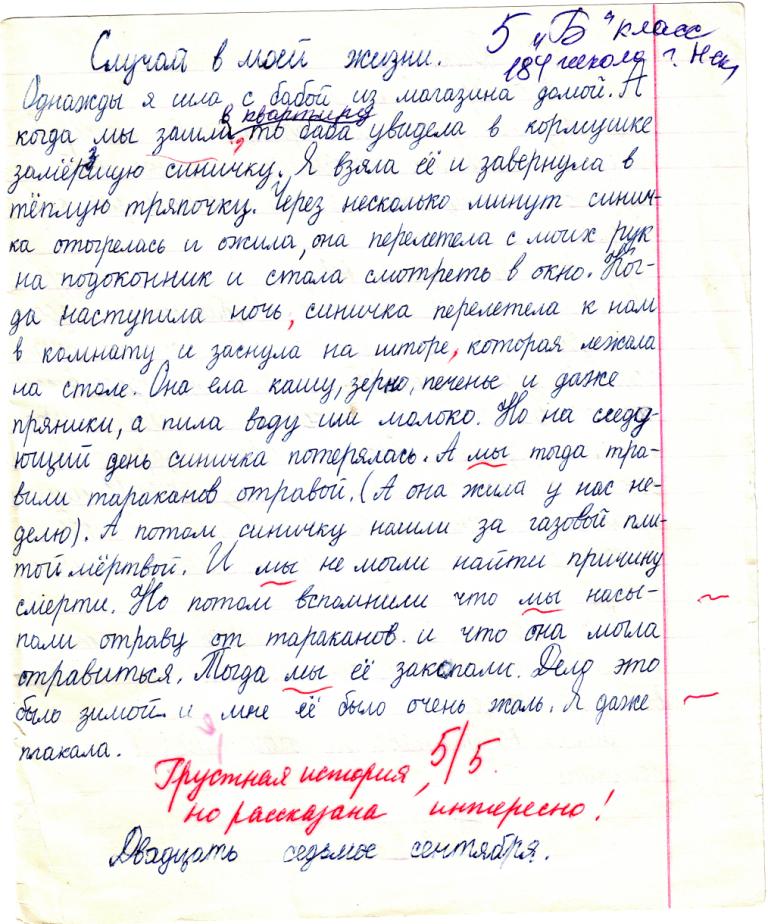 5 „Б" класс
Случай в моей жизни.
184 школа г. Нск,
Однажды я шла с бабой из магазина домой. А
в квартиру
когда мы зашли, то баба увидела в кормушке
замёрзшую синичку. Я взяла её и завернула в
тёплую тряпочку. Через несколько минут синич-
ка отогрелась и ожила, она перелетела с моих рук
на подоконник и стала смотреть в окно. Ког-
да наступила ночь, синичка перелетела к нам
в комнату и заснула на шторе, которая лежала
на столе. Она ела кашу, зерно, печенье и даже
пряники, а пила воду или молоко. Но на следу-
ющий день синичка потерялась. А мы тогда тра-
вили тараканов отравой. (А она жила у нас не-
делю). А потом синичку нашли за газовой пли-
той мёртвой. И мы не могли найти причину
смерти. Но потом вспомнили что мы насы-
пали отраву от тараканов. и что она могла
отравиться. Тогда мы её закопали. Дело это
было зимой. и мне её было очень жаль. Я даже
плакала.
5/5.
Грустная история,
но рассказана интересно!
Двадцать седьмое сентября.